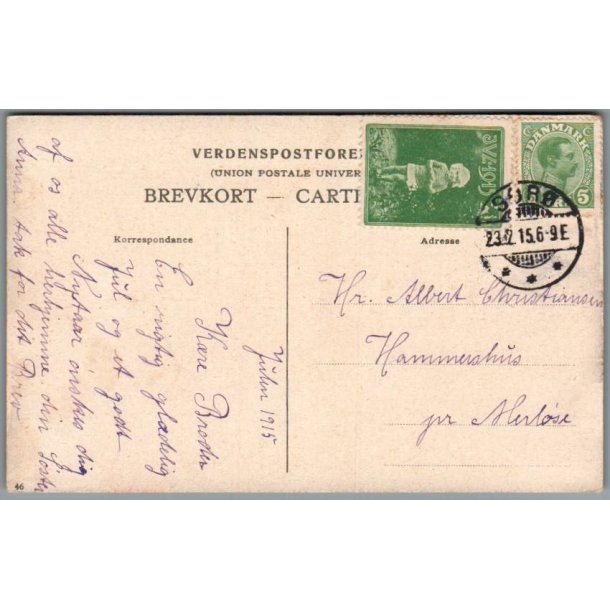 VERDENSPOSTFORE
(UNION POSTALE UNIVER
BREVKORT — CARTE
Korrespondance
Adresse
DANMARK
5
SORØ
23.12.15.6-9E
Julen 1915
Kære Broder
En rigtig glædelig
Jul og et godt
Nytaar ønskes dig
af os alle herhjemme din Søster
Anna. tak for dit Brev
Hr. Albert Christiansen
Hammershus
pr Merløse
46